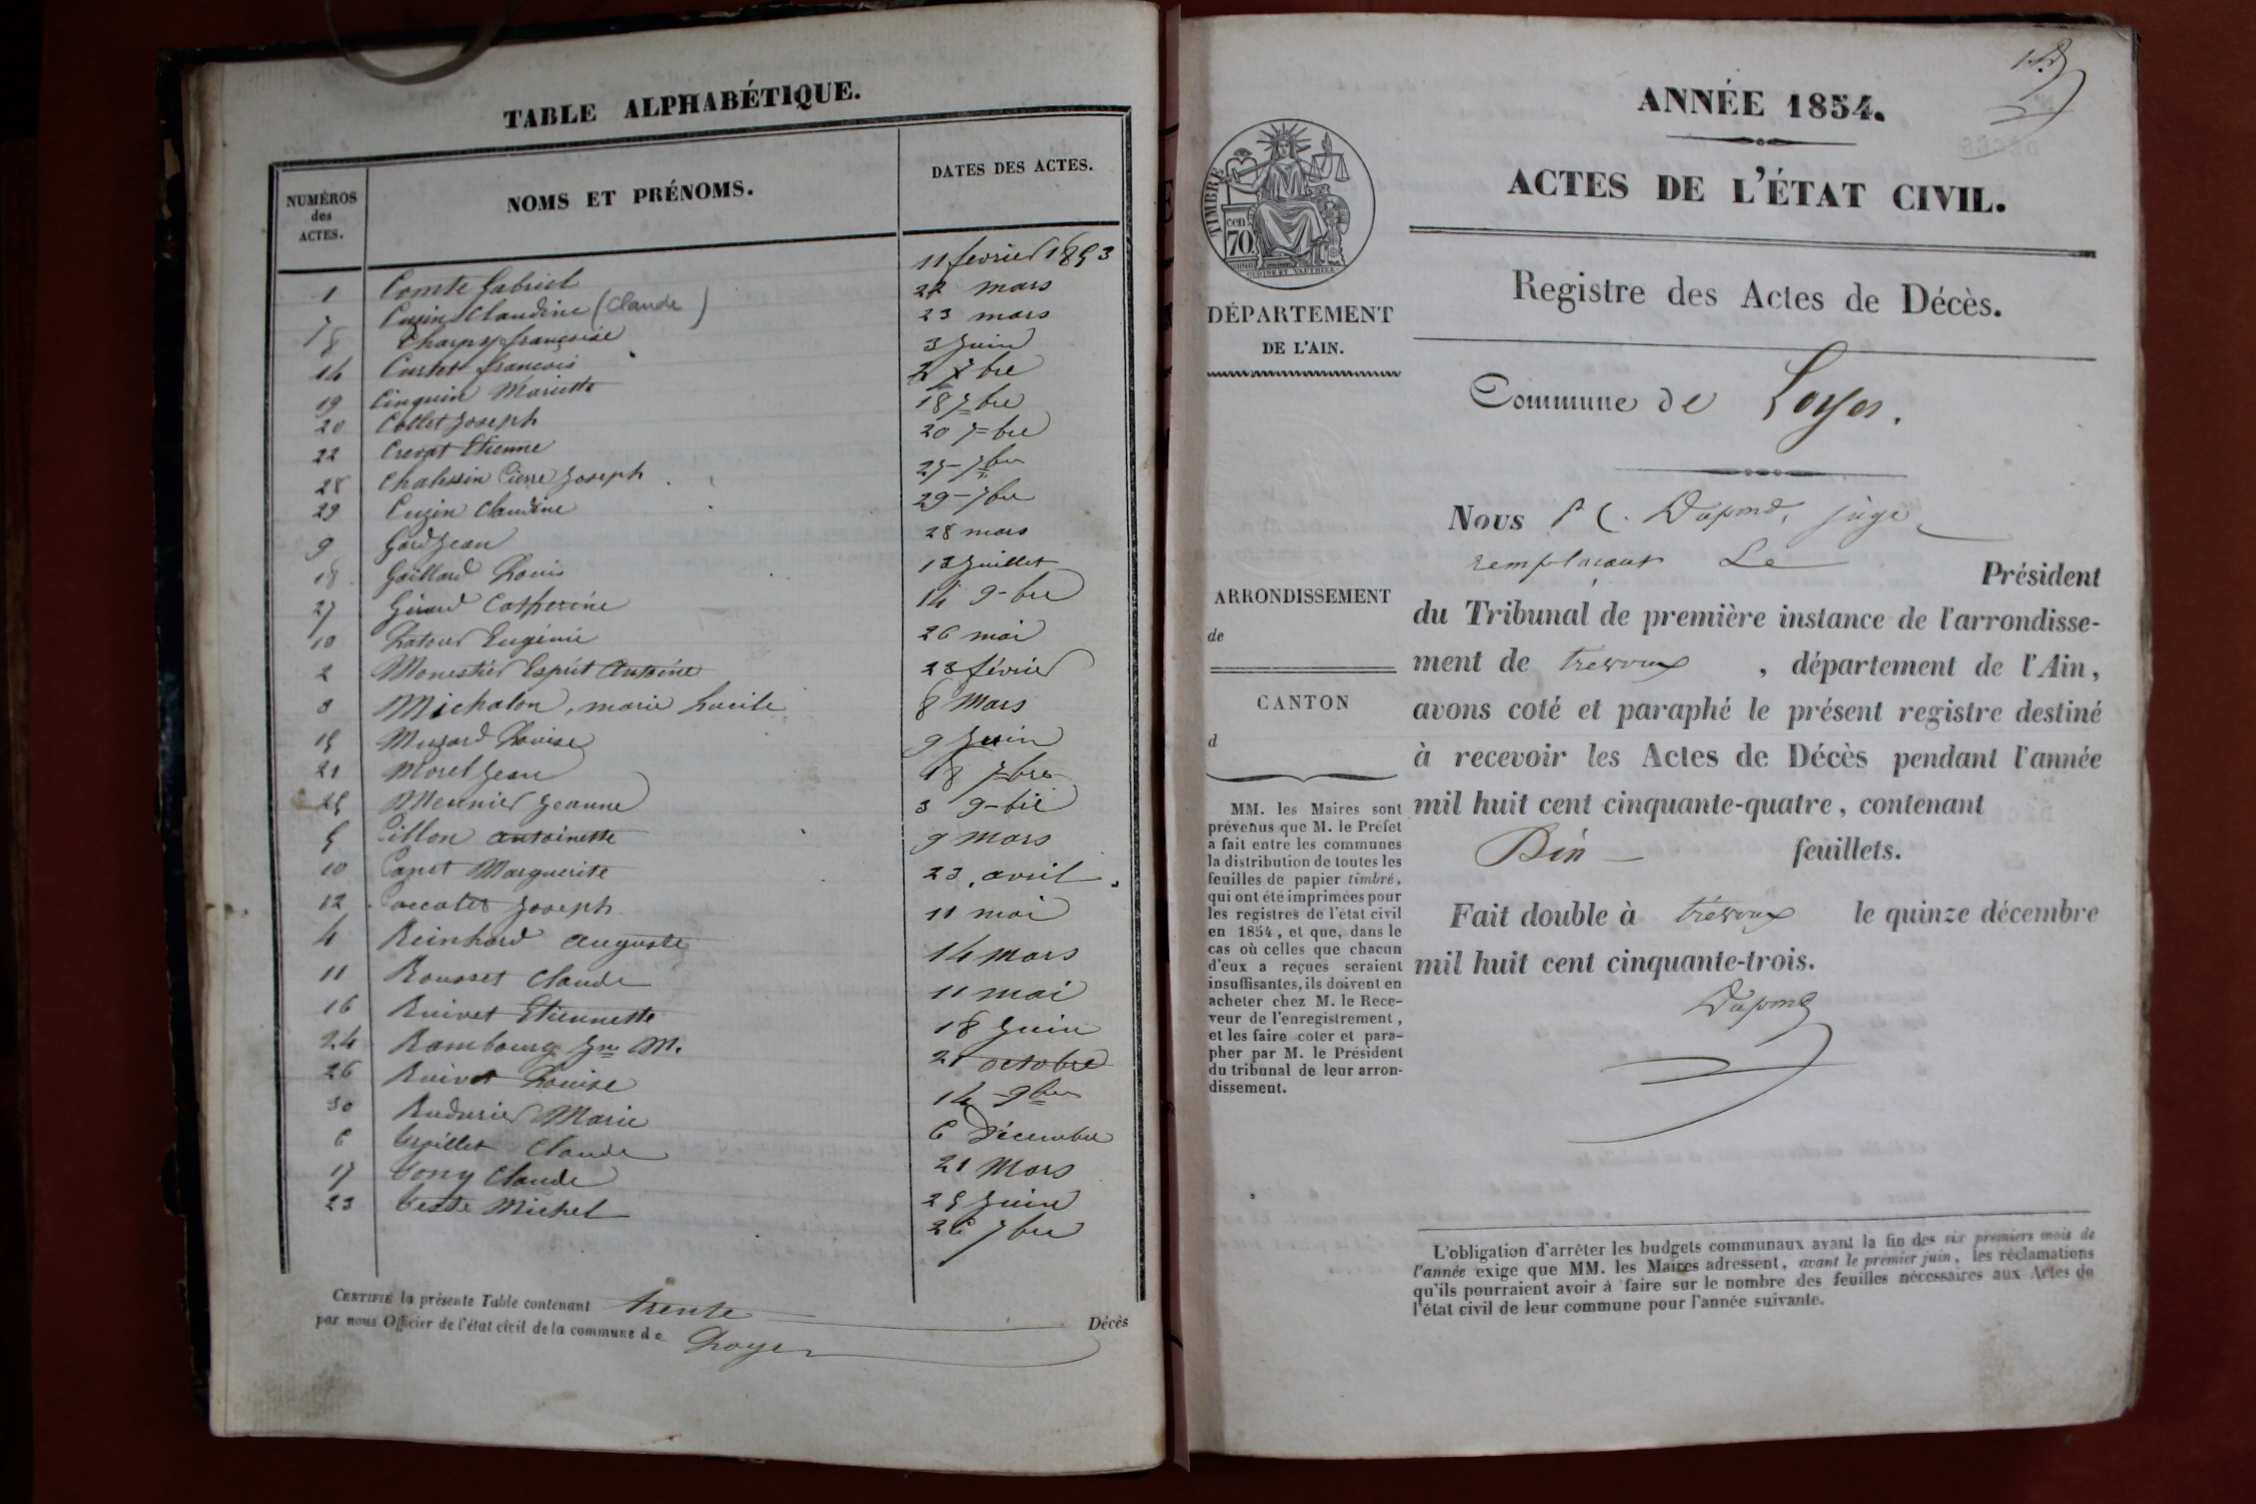 TABLE ALPHABÉTIQUE.
NUMÉROS des ACTES. NOMS ET PRÉNOMS. DATES DES ACTES.
1 Comte Gabriel 11 fevrier 1853
7 Cuzin Claudine (Claude) 22 mars
8 Charpy françoise 23 mars
14 Curtet françois 3 Juin
19 Cinquin Mariette 2 7bre
20 Collet Joseph 18 7bre
22 Crevat Etienne 20 7bre
28 Chalessin Pierre Joseph 25 9bre
29 Cuzin Claudine 29 9bre
9 Gard Jean 28 mars
18 Gaillard Louis 12 Juillet
27 Girard Catherine 14 9-bre
13 Latour Eugénie 26 mai
2 Monestier Esprit Antoine 28 février
3 Michalon, marie Lucile 8 Mars
15 Muzard Louise 9 Juin
21 Morel Jean 18 7bre
25 Meunier Jeanne 3 9-bre
5 Pillon antoinette 9 Mars
10 Marguerite 23, avril.
12 Joseph 11 mai
4 Reinhard auguste 14 Mars
11 Rousset Claude 11 mai
16 Ruivet Etiennette 18 Juin
24 Rambourg Jn M. 21 octobre
26 Ruivet Louise 14 9bre
30 Marie 6 Décembre
6 Claude 21 Mars
17 Tony Claude 25 Juin
23 Teste Michel 26 7bre
CERTIFIÉ la présente Table contenant trente Décès
par nous Officier de l'état civil de la commune de Loyes
ANNÉE 1854.
ACTES DE L'ÉTAT CIVIL.
Registre des Actes de Décès.
TIMBRE
cen
70
DÉPARTEMENT
DE L'AIN.
Commune de Loyes.
Nous P C. Dupond, juge
remplaçant Le Président
ARRONDISSEMENT
de
CANTON
d
du Tribunal de première instance de l'arrondisse-
ment de trevoux, département de l'Ain,
avons coté et paraphé le présent registre destiné
à recevoir les Actes de Décès pendant l'année
mil huit cent cinquante-quatre, contenant
Dix feuillets.
Fait double à trévoux le quinze décembre
mil huit cent cinquante-trois.
Dupond
MM. les Maires sont
prévenus que M. le Préfet
a fait entre les communes
la distribution de toutes les
feuilles de papier timbré,
qui ont été imprimées pour
les registres de l'état civil
en 1854, et que, dans le
cas où celles que chacun
d'eux a reçues seraient
insuffisantes, ils doivent en
acheter chez M. le Rece-
veur de l'enregistrement,
et les faire coter et para-
pher par M. le Président
du tribunal de leur arron-
dissement.
L'obligation d'arrêter les budgets communaux avant la fin des six premiers mois de
l'année exige que MM. les Maires adressent, avant le premier juin, les réclamations
qu'ils pourraient avoir à faire sur le nombre des feuilles nécessaires aux Actes de
l'état civil de leur commune pour l'année suivante.